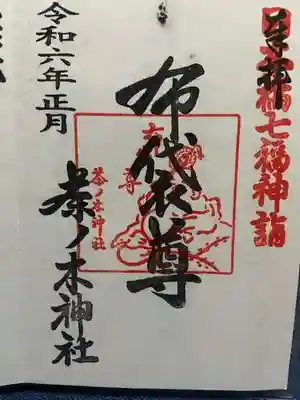 奉拝
日本橋七福神詣
布袋尊
茶ノ木神社
令和六年正月
茶ノ木神社